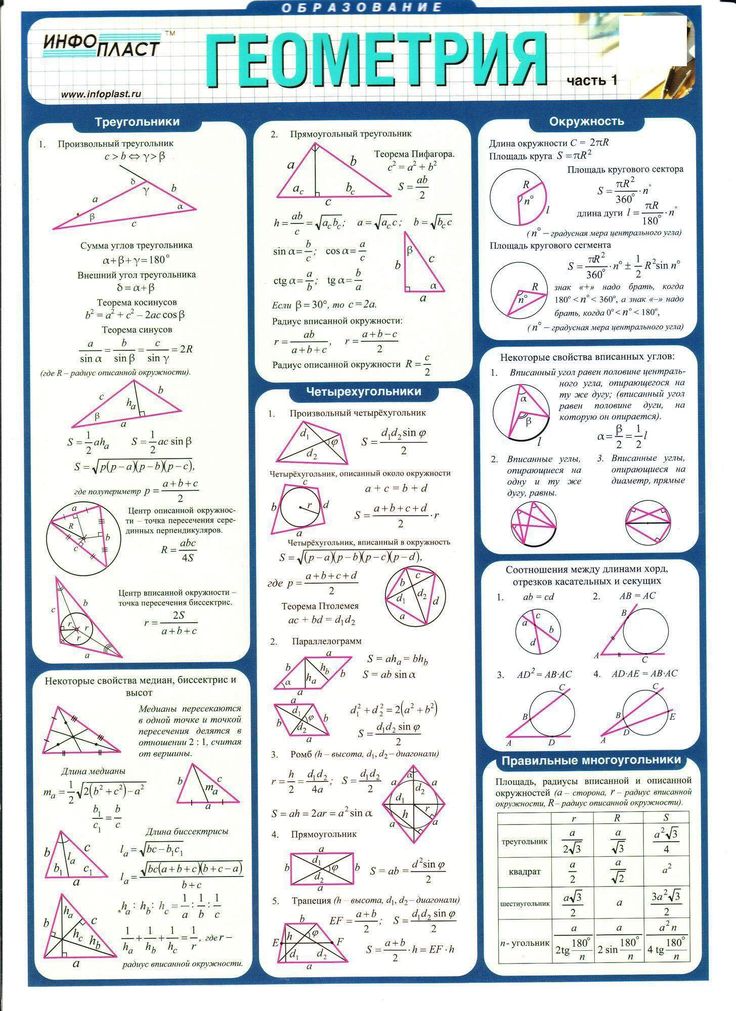 ОБРАЗОВАНИЕ
ИНФО
ПЛАСТ™
www.infoplast.ru
ГЕОМЕТРИЯ
часть 1
Треугольники
1. Произвольный треугольник
c > b ⇔ γ > β
Сумма углов треугольника
α+β+γ=180°
Внешний угол треугольника
δ=α+β
Теорема косинусов
b² = a² + c² – 2ac cos β
Теорема синусов
a/sin α = b/sin β = c/sin γ = 2R
(где R – радиус описанной окружности).
S = 1/2 ah_a S = 1/2 ac sin β
S = √(p(p–a)(p–b)(p–c)),
где полупериметр p = (a+b+c)/2
Центр описанной окружнос-
ти – точка пересечения сере-
динных перпендикуляров.
R = abc/4S
Центр вписанной окружности –
точка пересечения биссектрис.
r = 2S/(a+b+c)
Некоторые свойства медиан, биссектрис и
высот
Медианы пересекаются
в одной точке и точкой
пересечения делятся в
отношении 2 : 1, считая
от вершины.
Длина медианы
m_a = 1/2 √(2(b²+c²)–a²)
b₁/c₁ = b/c
Длина биссектрисы
l_a = √(bc–b₁c₁)
l_a = √(bc(a+b+c)(b+c–a))/(b+c)
h_a : h_b : h_c = 1/a : 1/b : 1/c
1/h_a + 1/h_b + 1/h_c = 1/r, где r –
радиус вписанной окружности.
2. Прямоугольный треугольник
Теорема Пифагора.
c² = a² + b²
S = ab/2
h = ab/c = √(a_c b_c); a = √(a_c c); b = √(b_c c)
sin α = b/c; cos α = a/c
ctg α = a/b; tg α = b/a
Если β = 30°, то c = 2a.
Радиус вписанной окружности:
r = ab/(a+b+c), r = (a+b–c)/2
Радиус описанной окружности R = c/2
Четырехугольники
1. Произвольный четырёхугольник
S = d₁d₂ sin φ/2
Четырёхугольник, описанный около окружности
a + c = b + d
S = (a+b+c+d)/2 · r
Четырёхугольник, вписанный в окружность
S = √((p–a)(p–b)(p–c)(p–d)),
где p = (a+b+c+d)/2
Теорема Птолемея
ac + bd = d₁d₂
2. Параллелограмм
S = ah_a = bh_b
S = ab sin α
d₁² + d₂² = 2(a² + b²)
S = d₁d₂ sin φ/2
3. Ромб (h – высота, d₁, d₂ – диагонали)
r = h/2 = d₁d₂/4a; S = d₁d₂/2
S = ah = 2ar = a² sin α
4. Прямоугольник
S = ab = d² sin φ/2
5. Трапеция (h – высота, d₁, d₂ – диагонали)
EF = (a+b)/2; S = d₁d₂ sin φ/2
S = (a+b)/2 · h = EF · h
Окружность
Длина окружности C = 2πR
Площадь круга S = πR²
Площадь кругового сектора
S = πR²/360° · n°
длина дуги l = πR/180° · n°
(n° – градусная мера центрального угла)
Площадь кругового сегмента
S = πR²/360° · n° ± 1/2 R² sin n°
знак «+» надо брать, когда
180° < n° < 360°, а знак «–» надо
брать, когда 0° < n° < 180°,
(n° – градусная мера центрального угла)
Некоторые свойства вписанных углов:
1. Вписанный угол равен половине централь-
ного угла, опирающегося на
ту же дугу; (вписанный угол
равен половине дуги, на
которую он опирается).
α = β/2 = 1/2 l
2. Вписанные углы,
опирающиеся на
одну и ту же
дугу, равны.
3. Вписанные углы,
опирающиеся на
диаметр, прямые
Соотношения между длинами хорд,
отрезков касательных и секущих
1. ab = cd 2. AB = AC
3. AD² = AB·AC 4. AD·AE = AB·AC
Правильные многоугольники
Площадь, радиусы вписанной и описанной
окружностей (a – сторона, r – радиус вписанной
окружности, R – радиус описанной окружности).
r R S
треугольник a/2√3 a/√3 a²√3/4
квадрат a/2 a/√2 a²
шестиугольник a√3/2 a 3a²√3/2
n - угольник a/(2tg 180°/n) a/(2 sin 180°/n) a²n/(4 tg 180°/n)